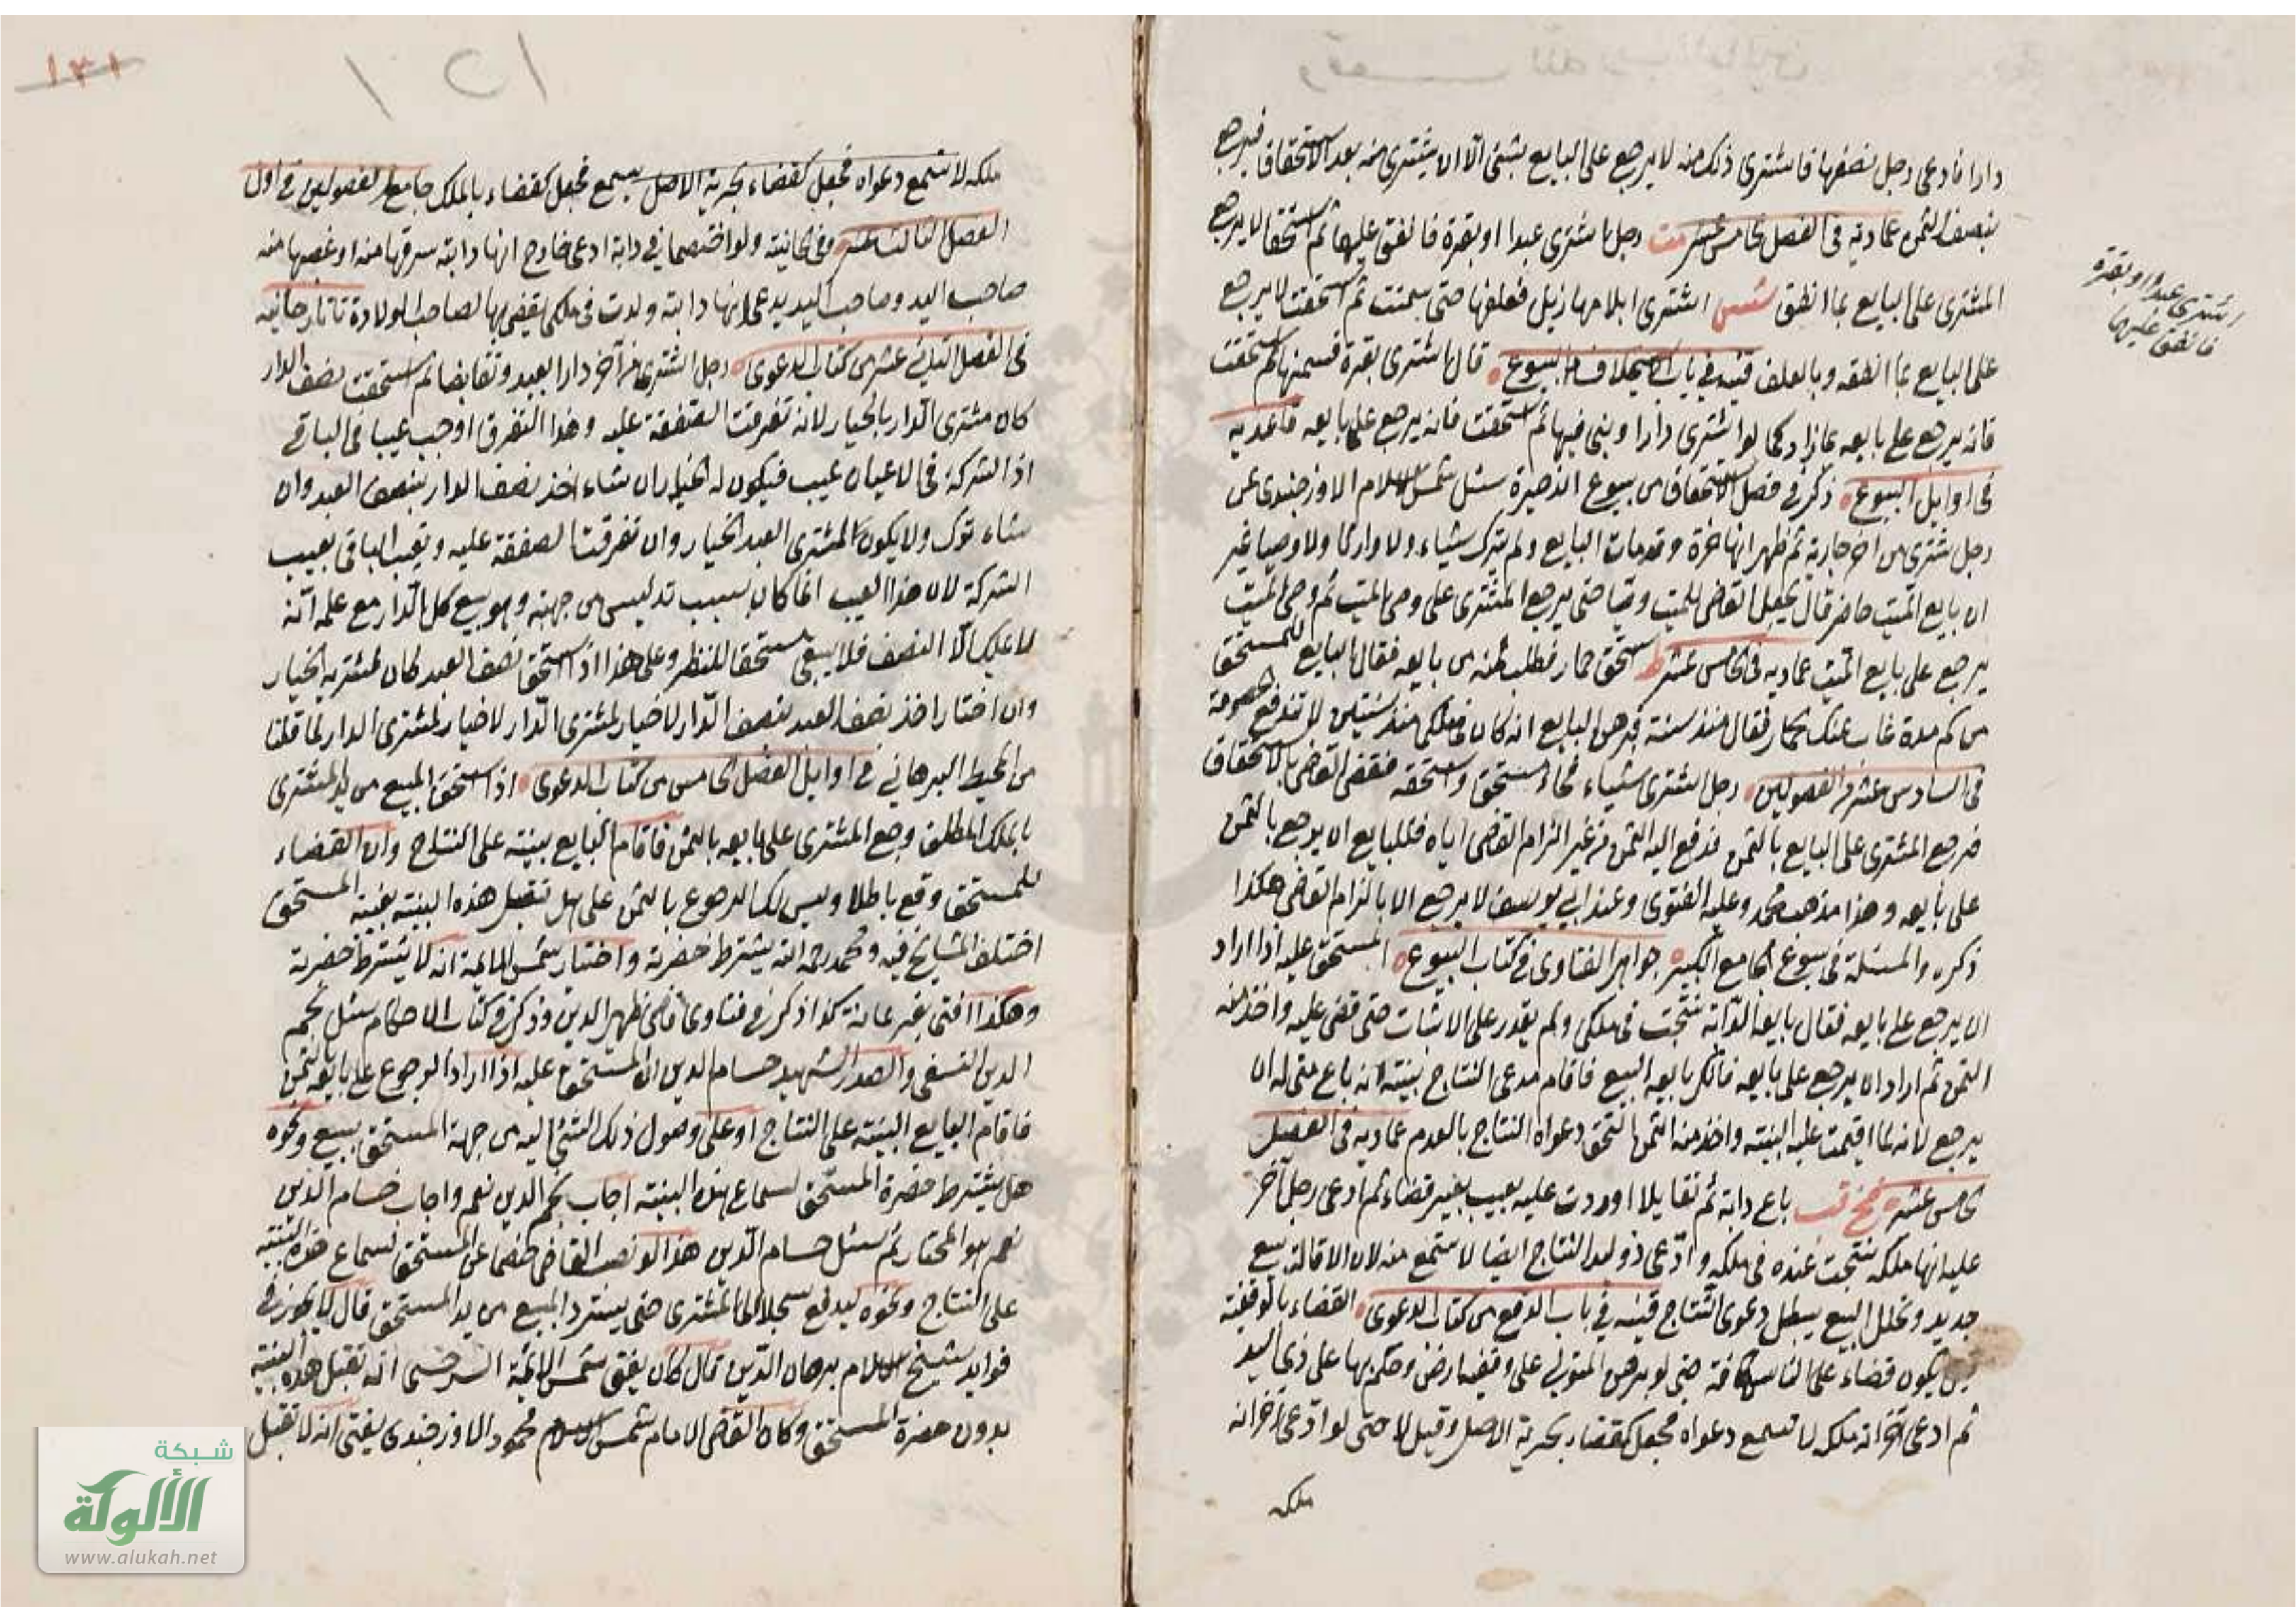 وقف لله رب العالمين
دارا فادعى رجل نصفها فاشترى ذلك منه لا يرجع على البايع بشئ الا ان يشترى منه بعد الاستحقاق فيرجع
بنصف الثمن عمادية فى الفصل الخامس عشر مت رجل اشترى عبدا او بقرة فانفق عليها ثم استحقا لا يرجع
المشترى على البايع بما انفق شس اشترى ابلا مهازيل فعلفها حتى سمنت ثم استحقت لا يرجع
على البايع بما انفقه وبالعلف قنيه فى باب الاستحقاق البيوع قال اشترى بقرة فسمنها ثم استحقت
فانه يرجع على بايعه بما زاد كما لو اشترى دارا وبنى فيها ثم استحقت فانه يرجع على بايعه قاعديه
فى اوايل البيوع ذكر فى فصل الاستحقاق من بيوع الذخيرة سئل شمس الاسلام الاوزجندى عن
رجل اشترى من اخر جارية ثم ظهر انها حرة وقد مات البايع ولم يترك شياء ولا وارثا ولا وصيا غير
ان بايع الميت حاضر قال يجعل القاضى للميت وصيا حتى يرجع المشترى على وصى الميت ثم وصى الميت
يرجع على بايع الميت عماديه فى الخامس عشر ط استحق حمار فطلب ثمنه من بايعه فقال البايع للمستحق
من كم مدة غاب عنك الحمار فقال منذ سنة فبرهن البايع انه كان فى ملكى منذ سنتين لا تندفع الخصومة
فى السادس عشر من الفصولين رجل اشترى شياء فجاء مستحق واستحقه فقضى القاضى بالاستحقاق
فرجع المشترى على البايع بالثمن فدفع اليه الثمن من غير الزام القاضى اياه فللبايع ان يرجع بالثمن
على بايعه وهذا مذهب محمد وعليه الفتوى وعند ابى يوسف لا يرجع الا بالزام القاضى هكذا
ذكره والمسئلة فى بيوع الجامع الكبير جواهر الفتاوى فى كتاب البيوع المستحق عليه اذا اراد
ان يرجع على بايعه فقال بايعه الدابة نتجت فى ملكى ولم يقدر على الاثبات حتى قضى عليه واخذ منه
الثمن ثم اراد ان يرجع على بايعه فانكر بايعه البيع فاقام مدعى النتاج بينته انه باع منى له ان
يرجع لانه لما اقيمت عليه البينته واخذ منه الثمن التحق دعواه النتاج بالعدم عماديه فى الفصل
الخامس عشر باع دابة ثم تقايلا او ردت عليه بعيب بغير قضاء ثم ادعى رجل آخر
عليه انها ملكه نتجت عنده فى ملكه وادعى ذو اليد النتاج ايضا لا تسمع منه لان الاقالة بيع
جديد وتخلل البيع يبطل دعوى النتاج قنيه فى باب الدفع من كتاب الدعوى القضاء بالوقفية
يكون قضاء على الناس كافة حتى لو برهن المتولى على وقفية ارض وحكم بها على ذى اليد
ثم ادعى آخر انه ملكه لا تسمع دعواه فجعل كقضاء بحرية الاصل وقيل لا حتى لو ادعى آخر انه
ملكه
اشترى عبدا او بقرة
فانفق عليها
١٢١
١٣١
ملكه لا تسمع دعواه فجعل كقضاء بحرية الاصل يسمع فجعل كقضاء بالملك جامع الفصولين فى اول
الفصل الثالث عشر وفى الخانية ولو اختصما فى دابة ادعى خارج انها دابته سرقها منه او غصبها منه
صاحب اليد وصاحب اليد يدعى انها دابته ولدت فى ملكى يقضى بها لصاحب الولادة تاتارخانيه
فى الفصل الثانى عشر من كتاب الدعوى رجل اشترى من آخر دارا بعبد وتقابضا ثم استحقت نصف الدار
كان مشترى الدار بالخيار لانه تفرقت الصفقة عليه وهذا التفرق اوجب عيبا فى الباقى
اذ الشركة فى الاعيان عيب فيكون له الخيار ان شاء اخذ نصف الدار بنصف العبد وان
شاء ترك ولا يكون لمشترى العبد الخيار وان تفرقت الصفقة عليه وتعيب الباقى بعيب
الشركة لان هذا العيب انما كان بسبب تدليس من جهته وهو بيع كل الدار مع علمه انه
لا يملك الا النصف فلا يبقى مستحقا للنظر وعلى هذا اذا استحق نصف العبد كان لمشتريه الخيار
وان اختار اخذ نصف العبد بنصف الدار لا خيار لمشترى الدار لا خيار لمشترى الدار لما قلنا
من المحيط البرهانى فى اوايل الفصل الخامس من كتاب الدعوى اذا استحق المبيع من يد المشترى
بالملك المطلق ورجع المشترى على بايعه بالثمن فاقام البايع بينته على النتاج وان القضاء
للمستحق وقع باطلا وليس لك الرجوع بالثمن على هل تقبل هذه البينته بغيبة المستحق
اختلف المشايخ فيه ومحمد رحمه الله يشترط حضرته واختيار شمس الائمة انه لا يشترط حضرته
وهكذا افتى بفرغانة كذا ذكر فى فتاوى قاضى ظهير الدين وذكر فى كتاب الاحكام سئل نجم
الدين النسفى والصدر الشهيد حسام الدين ان المستحق عليه اذا اراد الرجوع على بايعه بالثمن
فاقام البايع البينته على النتاج او على وصول ذلك الشئ اليه من جهة المستحق ببيع ونحوه
هل يشترط حضرة المستحق لسماع هذه البينته اجاب نجم الدين نعم واجاب حسام الدين
نعم هو المختار ثم سئل حسام الدين هذا لو نصب القاضى خصما عن المستحق لسماع هذه البينته
على النتاج ونحوه ليدفع سجلا الى المشترى حتى يسترد المبيع من يد المستحق قال لا يجوز فى
فوايد شيخ الاسلام برهان الدين قال كان يفتى شمس الائمة السرخسى انه تقبل هذه البينته
بدون حضرة المستحق وكان القاضى الامام شمس الاسلام محمود الاوزجندى يفتى انه لا تقبل
شبكة
الألوكة
www.alukah.net